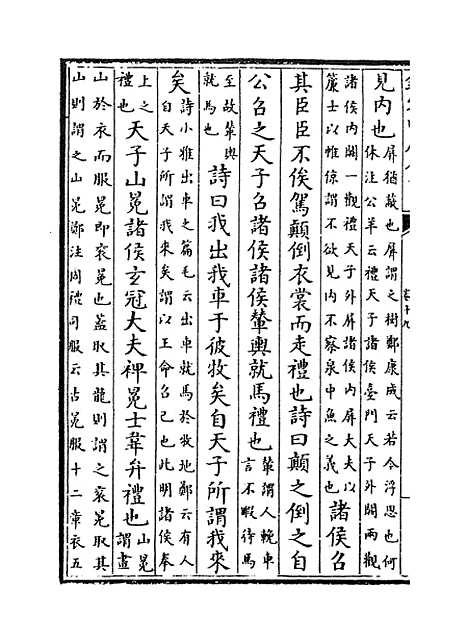 卷十九
見内也屏猶蔽也屏謂之樹鄭康成云若今浮思也何
休注公羊云禮天子諸侯臺門天子外闕兩觀
諸侯内闕一觀禮天子外屏諸侯内屏大夫以
簾士以帷倞謂不欲見内不察泉中魚之義也諸侯召
其臣臣不俟駕顛倒衣裳而走禮也詩曰顛之倒之自
公召之天子召諸侯諸侯輦輿就馬禮也輦謂人輓車
言不暇待馬
至故輦輿
就馬也詩曰我出我車于彼牧矣自天子所謂我來
矣詩小雅出車之篇毛云出車就於牧地鄭云有人
自天子所謂我來矣謂以王命召己也此明諸侯奉
上之
禮也天子山冕諸侯玄冠大夫裨冕士韋弁禮也山冕
謂畫
山於衣而服冕即衮冕也蓋取其龍則謂之衮冕取其
山則謂之山冕鄭注周禮司服云古冕服十二章衣五